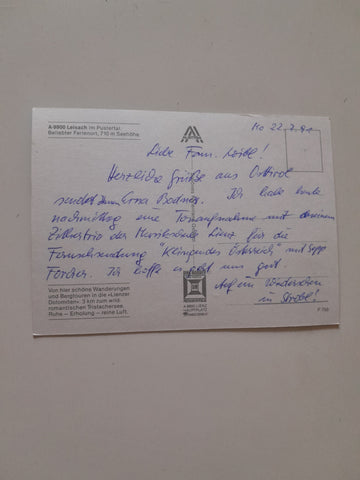 A-9900 Leisach im Pustertal.
Beliebter Ferienort, 710 m Seehöhe
Mo 22.7.91
Liebe Fam. !
Herzliche Grüße aus Osttirol
sendet Ihnen Erna Bodner. Ich habe heute
nachmittag eine Tonaufnahme mit
Zithertrio der Musikschule Lienz für die
Fernsehsendung "Klingendes Österreich" mit Sepp
Forcher. Ich hoffe es geht uns gut.
Auf ein Wiedersehen
in !
Von hier schöne Wanderungen
und Bergtouren in die «Lienzer
Dolomiten». 3 km zum wild-
romantischen Tristachersee.
Ruhe – Erholung – reine Luft.
A-9900 LIENZ
HAUPTPLATZ
P 750